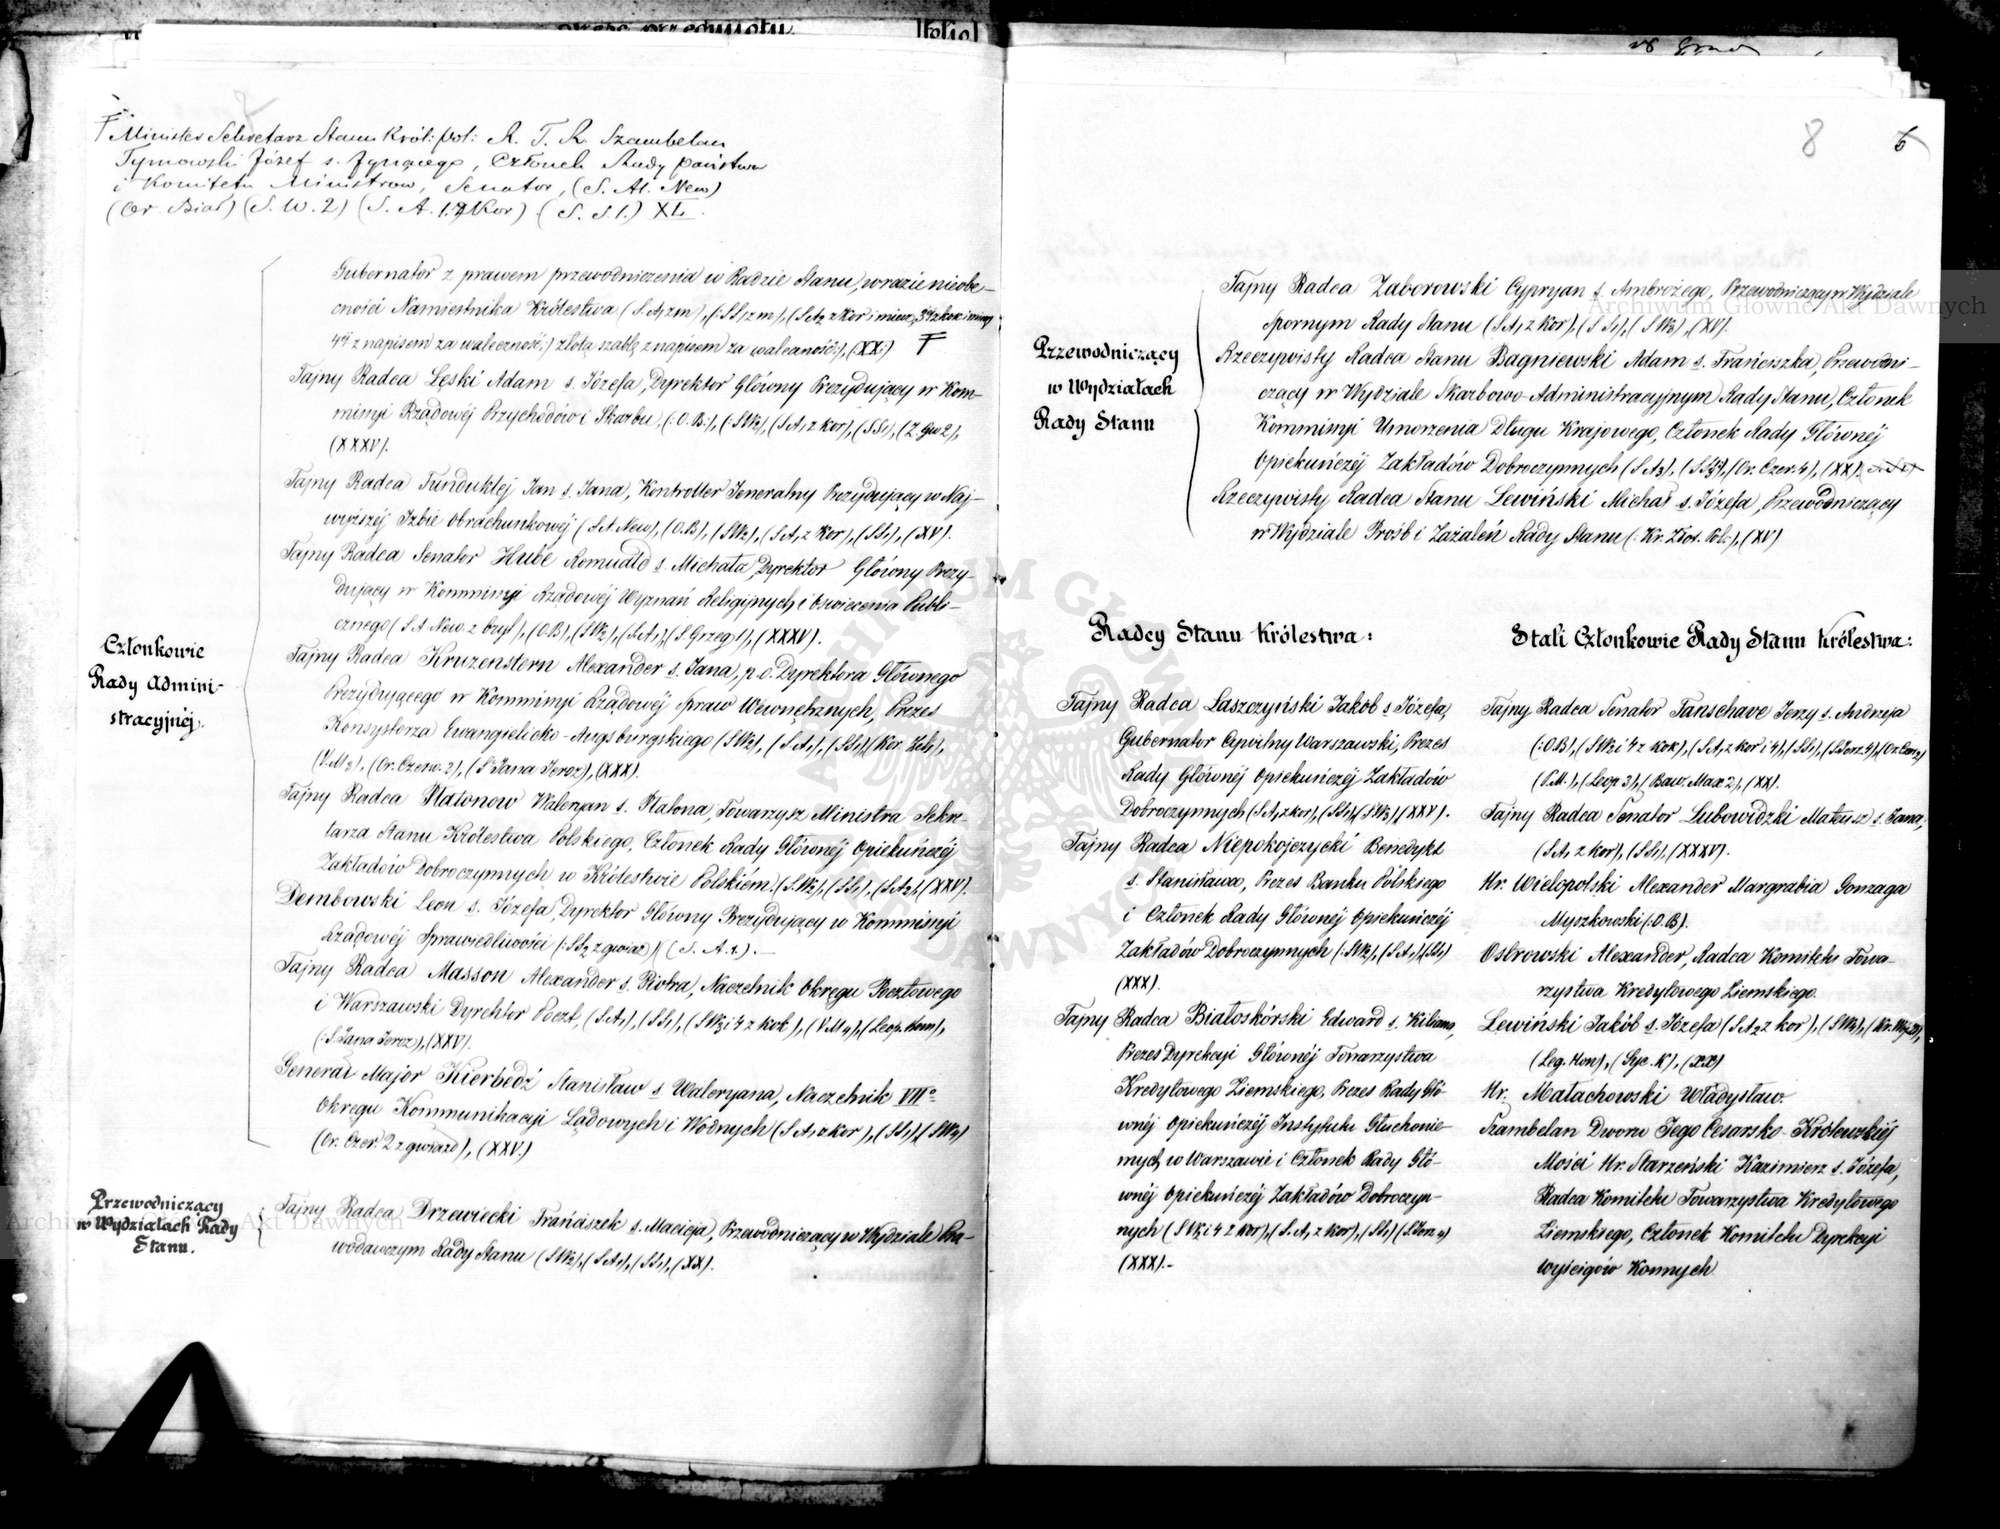 Minister Sekretarz Stanu Król: pol: R. T. R. Szambelan
Tymowski Józef s. Ignacego, Członek Rady państwa
i Komitetu Ministrow, Senator, (S. Al. New)
(Or. Biał) (S. W. 2) (S. A. 1 z Kor) (S. S. 1.) XL.
Gubernator z prawem przewodniczenia w Radzie Stanu, w razie nieobe-
cności Namiestnika Królestwa (S. A1 z m), (:SS1 z m), (S A2 z Kor i miecz,
4tej z napisem za waleczność:) złotą szablę z napisem za waleczność:), (:XX:) F
Tajny Radca Łęski Adam s. Józefa, Dyrektor Główny Prezydujący w Kom-
missyi Rządowéj Przychodów i Skarbu, (:O. B:), (:SW2), (S A1 z kor), (SS1), (Z Gw 2),
(XXXV).
Tajny Radca Funduklej Jan s. Jana, Kontroller Jeneralny Prezydujący w Naj-
wyższéj Izbie obrachunkowéj (S A. New), (O. B), (SW2), (S A1 z Kor), (SS1), (XV).
Tajny Radca Senator Hube Romuald s. Michała, Dyrektor Główny Prezy-
dujący w Kommissyi Rządowéj Wyznań Religijnych i Oswiecenia Publi-
cznego (S A New. z bryl), (O B), (SW2), (S A1), (S Grzeg 1), (XXXV).
Członkowie
Rady Admini-
stracyjnéj.
Tajny Radca Kruzenstern Alexander s. Jana, p. o. Dyrektora Głównego
Prezydującego w Kommissyi Rządowéj Spraw Wewnętrznych, Prezes
Konsystorza Ewangielicko-Augsburgskiego (SW2), (S A1), (SS1) (Kor. Żel),
(V. M 3), (Or. Czerw. 2), (S Jana Jeroz), (XXX).
Tajny Radca Płatonow Waleryan s. Płatona, Towarzysz Ministra Sekre-
tarza Stanu Królestwa Polskiego, Członek Rady Głównéj opiekuńczéj
Zakładów Dobroczynnych w Królestwie Polskiém. (SW2), (SS1), (S A2), (XXV).
Dembowski Leon s. Józefa, Dyrektor Główny Prezydujący w Kommissyi
Rządowéj Sprawiedliwości (:SA2 z gwiazd) (S. A. 1.).
Tajny Radca Masson Alexander s. Piotra, Naczelnik okręgu Pocztowego
i Warszawski Dyrektor Poczt, (S A1), (SS1), (SW3 i 4 z kok), (V. M 4), (Leop. Kom),
(:S Jana Jeroz), (XXV).
Generał Major Kierbedź Stanisław s. Waleryana, Naczelnik VIIo
okręgu Kommunikacyi Lądowych i Wodnych (S A1 z kor), (SS1), (SW4)
(Or. Czer. 2 z gwiazd), (XXV.)
Przewodniczący
w Wydziałach Rady
Stanu.
Tajny Radca Drzewiecki Franciszek s. Macieja, Przewodniczący w Wydziale Pra-
wodawczym Rady Stanu (SW2), (S A1), (SS1), (XX).
8 6
Tajny Radca Zaborowski Cypryan s. Ambrożego, Przewodniczący w Wydziale
Spornym Rady Stanu (S A1 z Kor), (S S1), (SW3), (XV).
Przewodniczący
w Wydziałach
Rady Stanu
Rzeczywisty Radca Stanu Bagniewski Adam s. Franciszka, Przewodni-
czący w Wydziale Skarbowo-Administracyjnym Rady Stanu, Członek
Kommissyi Umorzenia Długu Krajowego, Członek Rady Głównéj
Opiekuńczéj Zakładów Dobroczynnych (S A3), (SS3), (Or. Czer. 4), (XX).
Rzeczywisty Radca Stanu Lewiński Michał s. Józefa, Przewodniczący
w Wydziale Prośb i Zażaleń Rady Stanu (:Kr. Złot. Pol:), (XV)
Radcy Stanu Królestwa:
Tajny Radca Łaszczyński Jakób s. Józefa,
Gubernator Cywilny Warszawski, Prezes
Rady Głównéj opiekuńczéj Zakładów
Dobroczynnych (S A1 z kor), (SS1), (SW3), (XXV).
Tajny Radca Niepokojczycki Benedykt
s. Stanisława, Prezes Banku Polskiego
i Członek Rady Głównéj opiekuńczéj
Zakładów Dobroczynnych (:SW2), (S A1), (SS1)
(XXX).
Tajny Radca Białoskórski Edward s. Kiliana,
Prezes Dyrekcyi Głównéj Towarzystwa
Kredytowego Ziemskiego, Prezes Rady Głó-
wnéj opiekuńczéj Instytutu Głuchonie-
mych w Warszawie i Członek Rady Głó-
wnéj opiekuńczéj Zakładów Dobroczyn-
nych (SW3 i 4 z kor), (S. A1 z kor), (SS1) (S. Jerz 4)
(XXX).-
Stali Członkowie Rady Stanu Królestwa:
Tajny Radca Senator Fanschave Jerzy s. Andrzeja
(:O. B), (SW2 i 4 z kok), (S A1 z kor i 4), (SS1), (S Jerz 4), (Or. Czer 2)
(P. M.), (Leop 3), (Baw. Max 2), (XX).
Tajny Radca Senator Lubowidzki Mateusz s. Jana,
(S A1 z kor), (SS1), (XXXV).
Hr. Wielopolski Alexander Margrabia Gonzaga
Myszkowski (:O. B).
Ostrowski Alexander, Radca Komitetu Towa-
rzystwa Kredytowego Ziemskiego.
Lewiński Jakób s. Józefa (S A2 z kor), (SW3),
(Leg. Hon), (Syc. K), (XX)
Hr. Małachowski Władysław.
Szambelan Dworu Jego Cesarsko-Królewskiéj
Mości Hr. Starzeński Kazimierz s. Józefa,
Radca Komitetu Towarzystwa Kredytowego
Ziemskiego, Członek Komitetu Dyrekcyi
wyścigów Konnych
Archiwum Główne Akt Dawnych